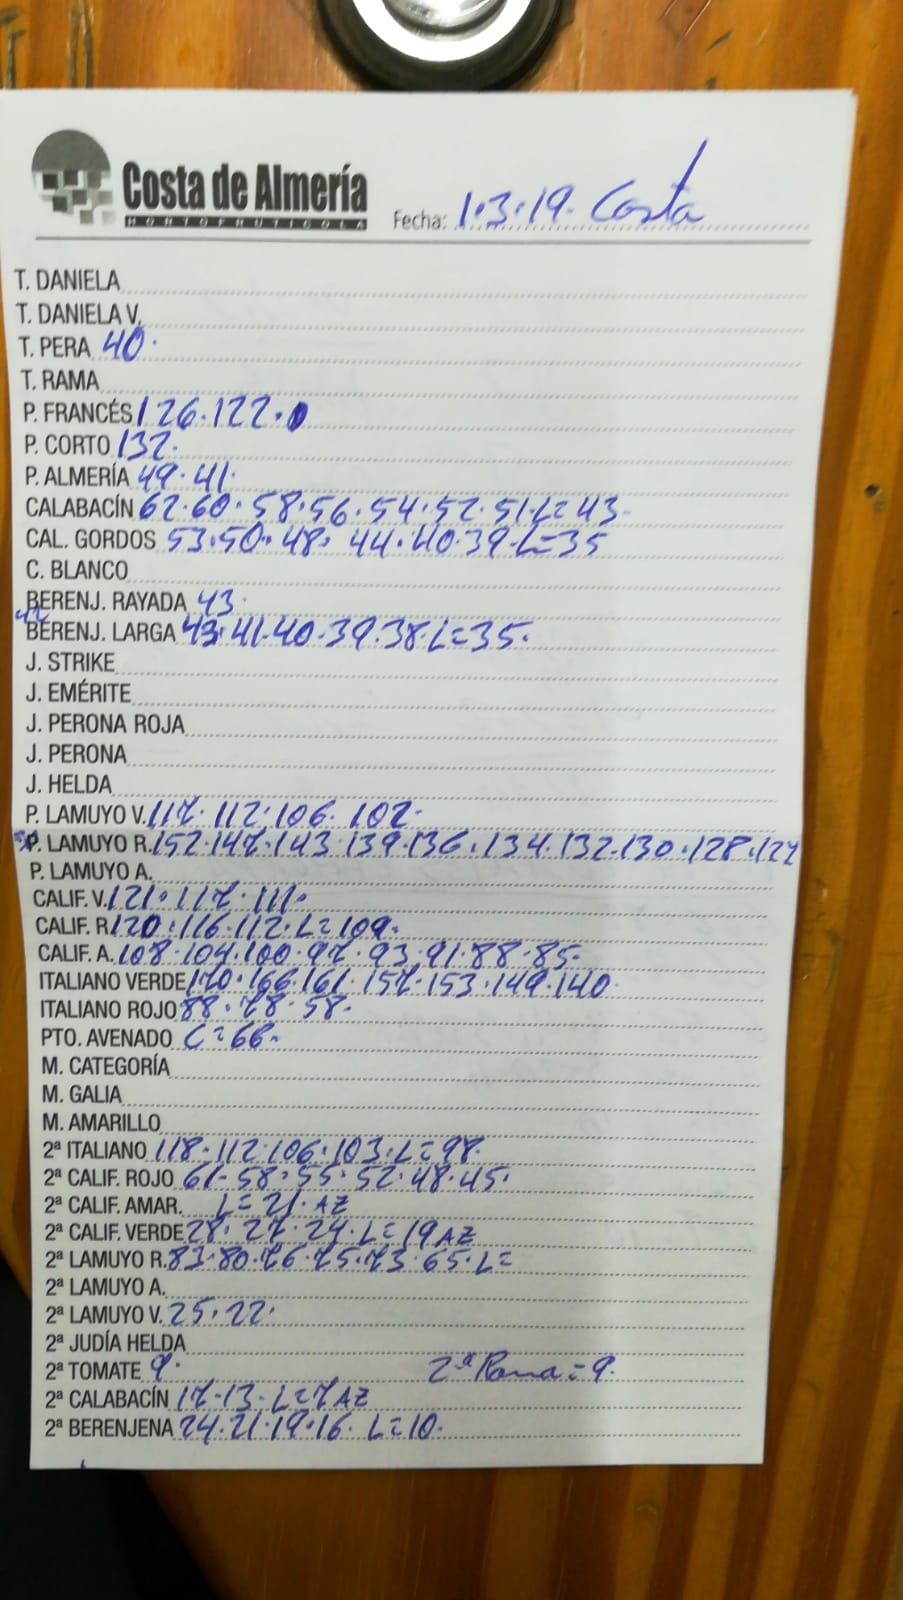 Costa de Almería
HORTOFRUTÍCOLA
Fecha: 1.3.19. Costa
T. DANIELA
T. DANIELA V.
T. PERA 40.
T. RAMA
P. FRANCÉS 126.122.
P. CORTO 132.
P. ALMERÍA 49.41.
CALABACÍN 62.60.58.56.54.52.51.L=43-
CAL. GORDOS 53.50.48. 44.40.39.L=35
C. BLANCO
BERENJ. RAYADA 43.
42
BERENJ. LARGA 43.41.40.39.38.L=35.
J. STRIKE
J. EMÉRITE
J. PERONA ROJA
J. PERONA
J. HELDA
P. LAMUYO V. 117.112.106.102.
P. LAMUYO R. 152.147.143.139.136.134.132.130.128.124
P. LAMUYO A.
CALIF. V. 121.117.111.
CALIF. R. 120.116.112.L=109.
CALIF. A. 108.104.100.97.93.91.88.85.
ITALIANO VERDE 170.166.161.157.153.149.140.
ITALIANO ROJO 88.78.58.
PTO. AVENADO C=66.
M. CATEGORÍA
M. GALIA
M. AMARILLO
2ª ITALIANO 118.112.106.103.L=98.
2ª CALIF. ROJO 61-58.55.52.48.45.
2ª CALIF. AMAR. L=21.AZ
2ª CALIF. VERDE 28.27.24.L=19 AZ
2ª LAMUYO R. 83.80.76.75.73.65.L=
2ª LAMUYO A.
2ª LAMUYO V. 25.22.
2ª JUDÍA HELDA
2ª TOMATE 9. 2ª Rama=9.
2ª CALABACÍN 17.13.L=7 AZ
2ª BERENJENA 24.21.19.16.L=10.